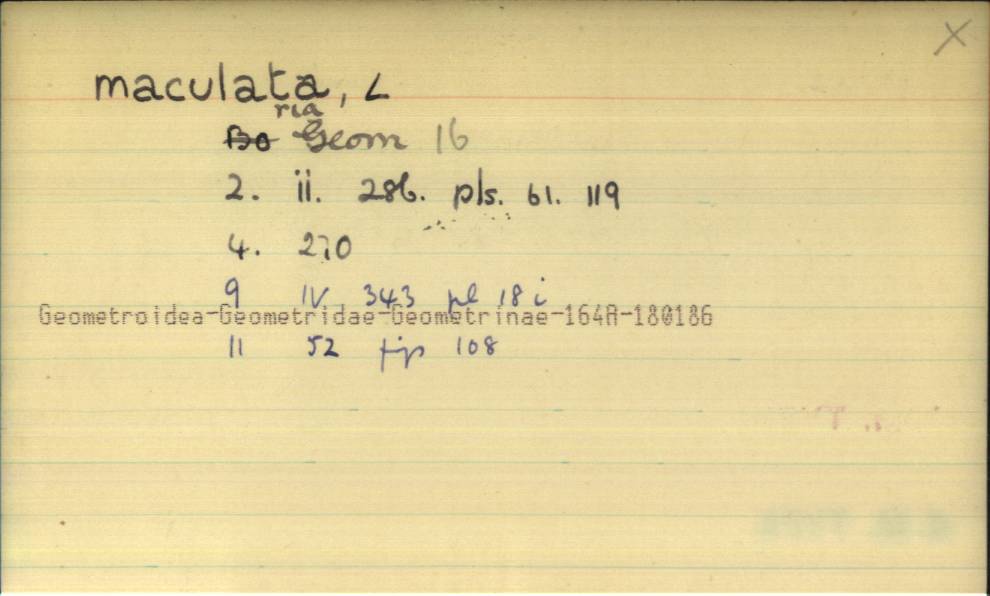 X
maculata, L
ria
Bo Geom 16
2. ii. 286. pls. 61. 119
4. 270
9 IV 343 pl 18 i
Geometroidea-Geometridae-Geometrinae-164A-180186
11 52 fip 108